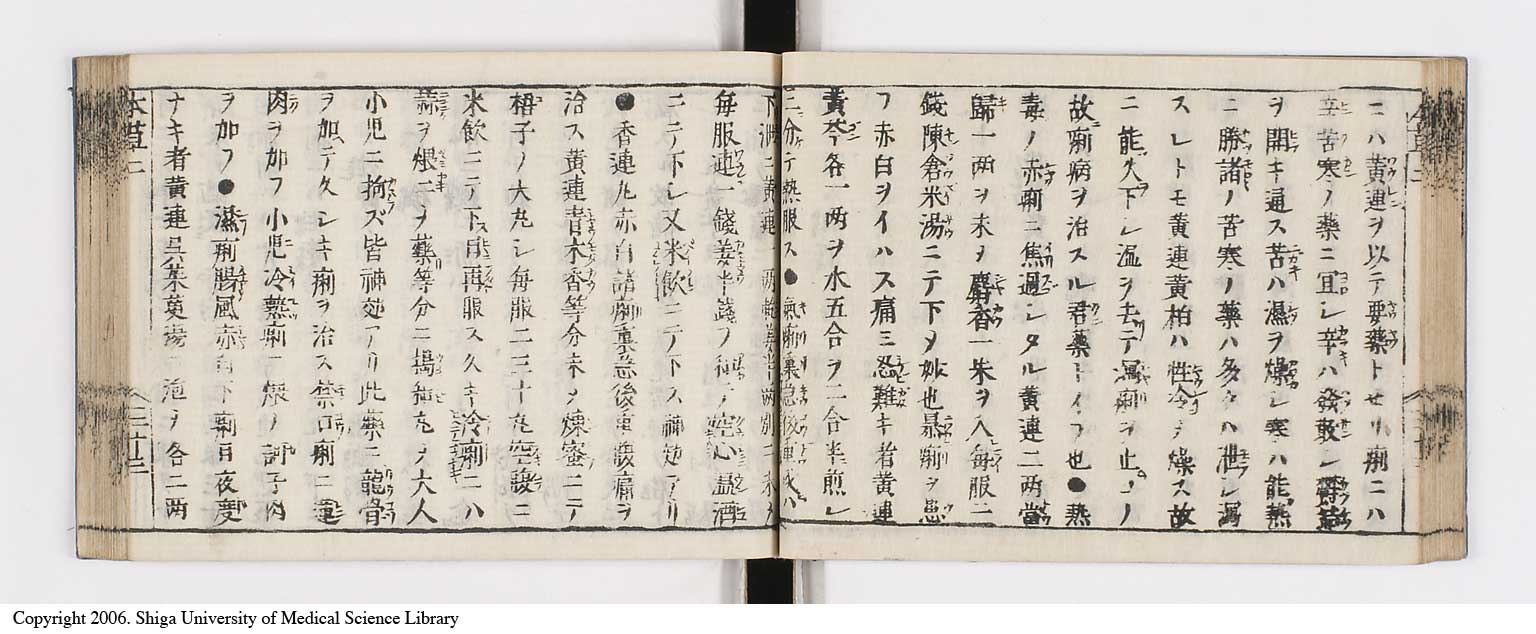 ニハ黄連ヲ以テ要薬トセリ痢ニハ
辛苦寒ノ薬ニ宜シ辛ハ發散シ
ヲ開キ通ス苦ハ濕ヲ燥シ寒ハ能熱
ニ勝諸ノ苦寒ノ薬ハ多クハ泄シ瀉
スレトモ黄連黄柏ハ性冷ヲ燥ス故
ニ能久下シ湿ヲ去テ瀉痢ヲ止ム
故痢病ヲ治スル君薬トイフ也●熱
毒ノ赤痢ニ焦過シタル黄連二两當
歸一两ヲ末ヲ麝香一朱ヲ入毎服二
錢陳倉米湯ニテ下メ妙也暴痢ヲ患
フ赤白ヲイハス痛ミ忍難キ者黄連
黄芩各一两ヲ水五合ヲ二合半煎シ
二分テ熱服ス●氣痢裏急後重或ハ
下泄ニ黄連一两乾姜半两別ニ末ス
毎服連一錢姜半錢ヲ和テ空心温酒
ニテ下シ又米飲ニテ下ス神妙アリ
●香連丸赤白諸痢裏急後重腹痛ヲ
治ス黄連青木香等分末メ煉蜜ニテ
梧子ノ大丸シ毎服二三十丸空腹ニ
米飲ニテ下ス日再服ス久キ冷痢ニハ
蒜ヲ煨ニヲ藥等分ニ搗和丸ヲ大人
小児ニ拘ズ皆神効アリ此藥ニ龍骨
ヲ加テ久シキ痢ヲ治ス禁口痢ニ蓮
肉ヲ加フ小児冷熱痢ニ煨ノ訶子肉
ヲ加フ●滋痢腸風赤白下痢日夜度
ナキ者黄連呉茱萸湯ニ泡ヲ各二两
本草二
二廿三